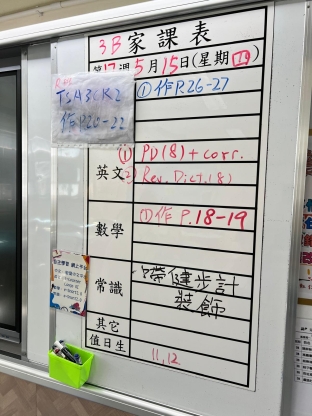 3B 家課表
第17週5月15日(星期四)
TSA3CK2
作P.20-22
①作P.26-27
英文
① PD(8) + corr.
② Rev. Dict.(8)
數學
①作 P.18-19
常識
帶健步計
裝飾
其它
值日生
11,12